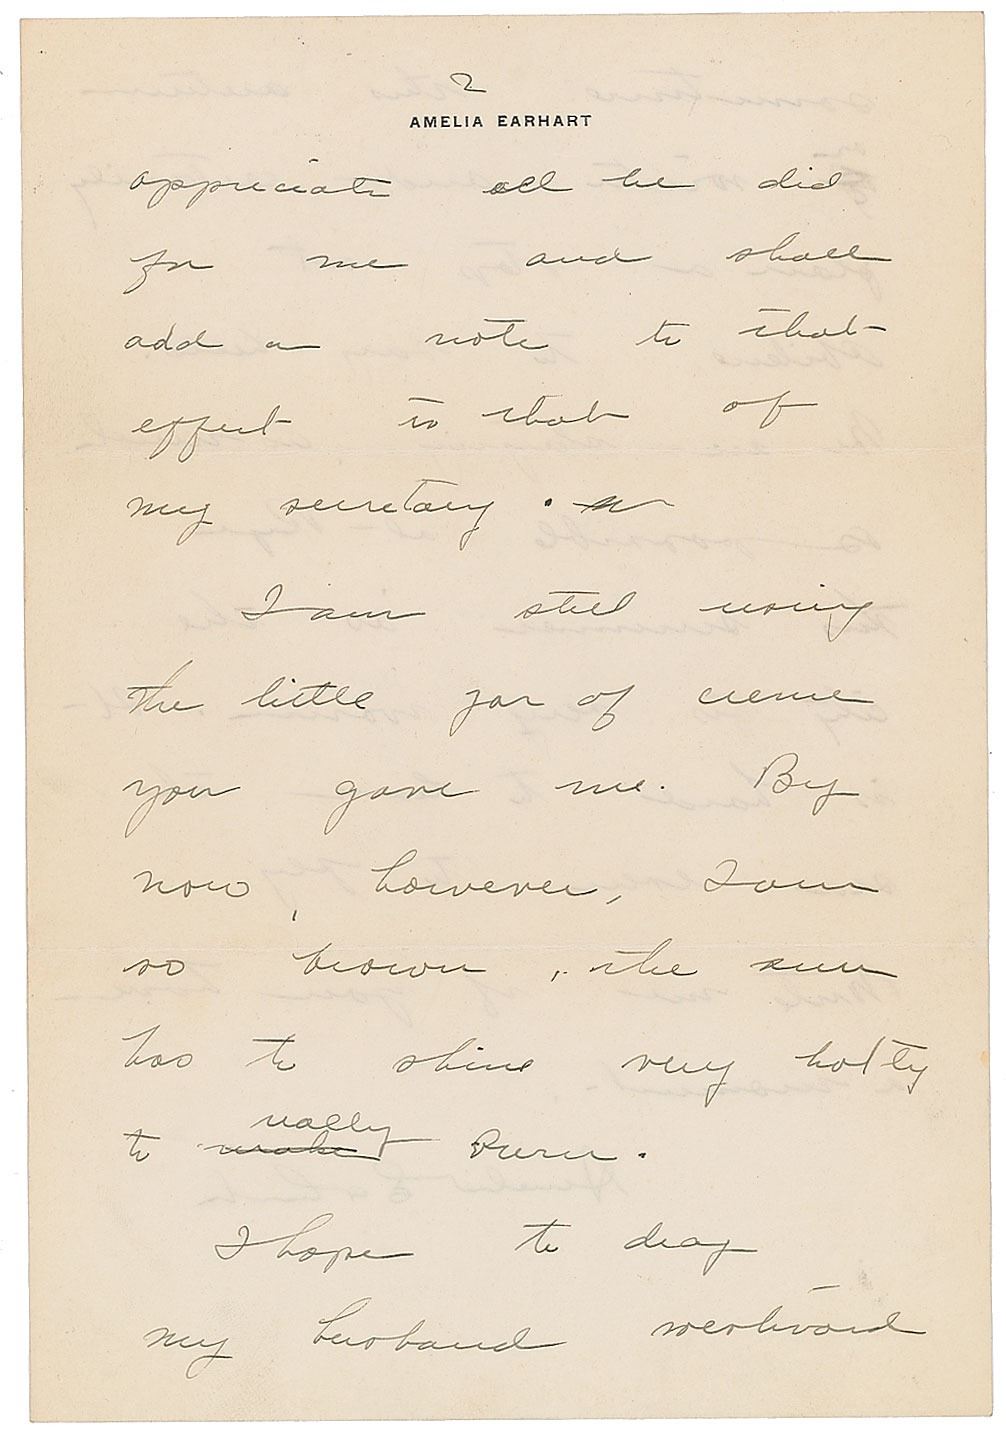 2
AMELIA EARHART
appreciate all he did
for me and shall
add a note to that
effect to that of
my secretary.
I am still using
the little jar of creme
you gave me. By
now, however, I am
so brown, the sun
has to shine very hotly
really
to make burn.
I hope to drag
my husband westward